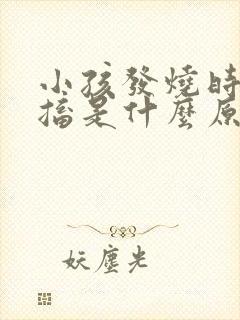 小孩發燒時
搐是什麼原
妖塵光